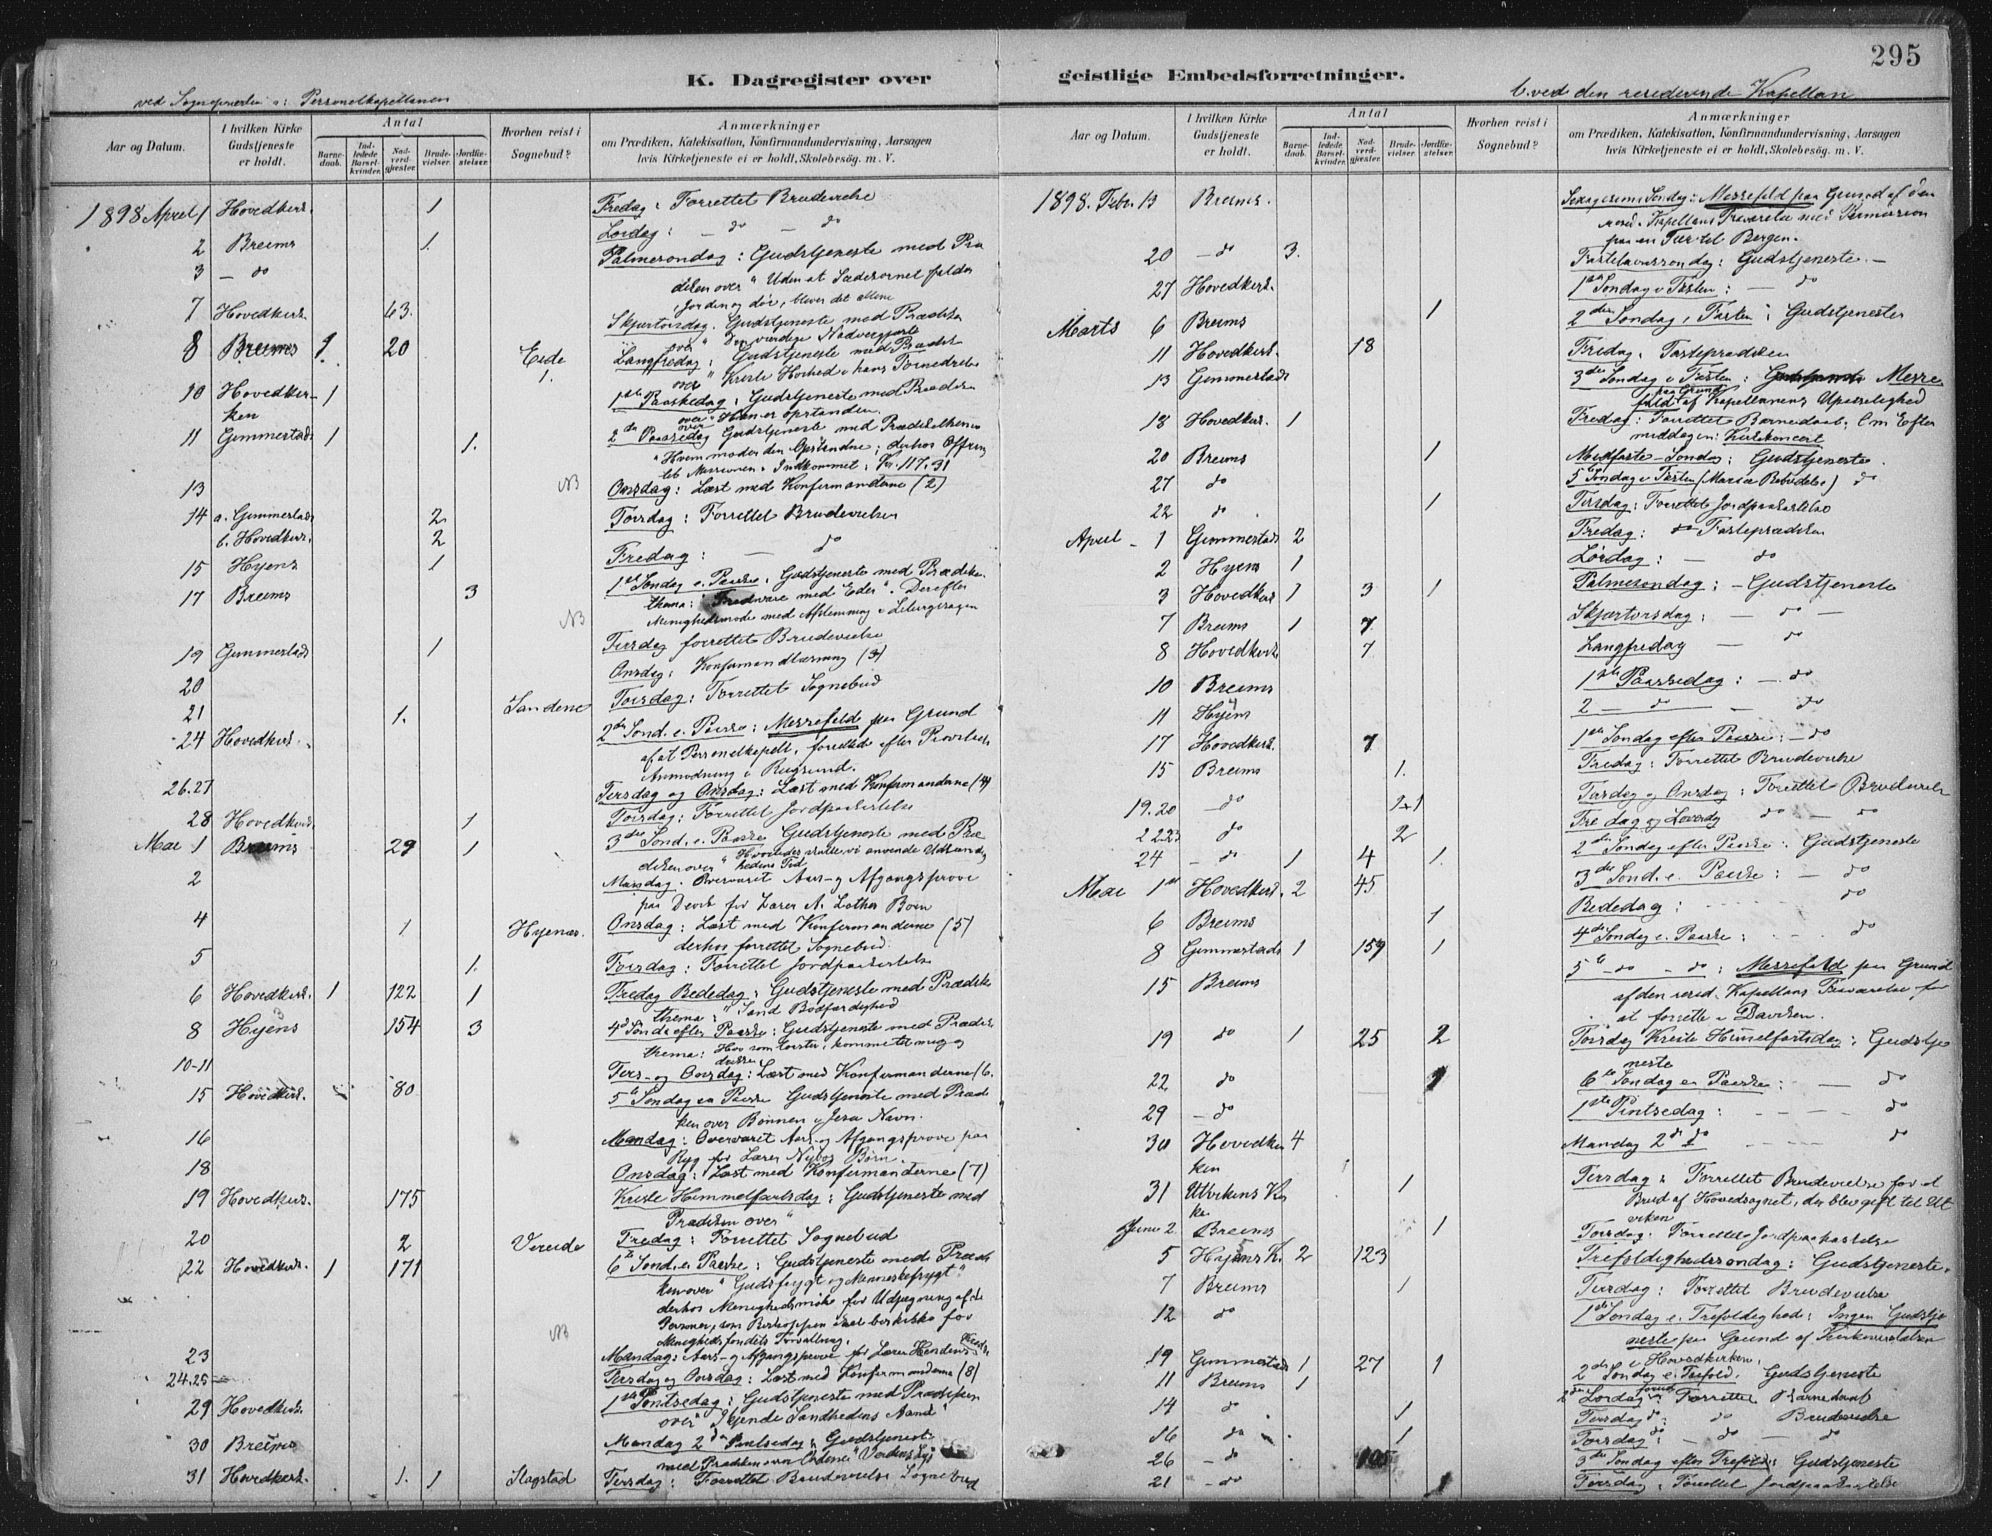 295
K. Dagregister over geistlige Embedsforretninger.
ved Sognepræsten a: Personelkapellanen
b. ved den residerende Kapellan
Aar og Datum.
I hvilken Kirke Gudstjeneste er holdt.
Antal
Barnedaab.
Indledede Barselkvinder.
Nadverdgjester.
Brudevielser.
Jordfæstelser.
Hvorhen reist i Sognebud?
Anmærkninger
om Prædiken, Katekisation, Konfirmandundervisning, Aarsagen hvis Kirketjeneste ei er holdt, Skolebesøg. m. V.
1898 April 1 Hovedkirk. 1 Fredag: Forrettet Brudevielse
2 Breims 1. Lørdag: — do — do
3 — do Palmesøndag: Gudstjeneste med Præ
diken over "Uden at Sædekornet falder
i Jorden og dør, bliver det alene
7 Hovedkirk. 63. Skjærtorsdag. Gudstjeneste med Prædik
over "Den værdige Nadvergjest
8 Breims 1. 20 Eide 1. Langfredag: Gudstjeneste med Prædik
over "Kristi Høihed i hans Fornedrelse
10 Hovedkir- 1 1ste Paaskedag: Gudstjeneste med Prædiken
ken over Han er opstanden.
11 Gimmestads 1 1. 2den Paaskedag Gudstjeneste med Prædik. thema
"Hvem møder den Opstandne; derhos Offring
til Missionen. Indkommet: Kr. 117.31
13 NB Onsdag: Læst med Konfirmandene (2)
14 a. Gimmestads 2 Torsdag: Forrettet Brudevielser
b. Hovedkir. 2
15 Hyens 1 Fredag: — do
17 Breims 3 1ste Søndag e. Paaske. Gudstjeneste med Prædike-
thema: "Fred være med Eder". Derefter
NB Menighedsmøde med Afstemning i Liturgisagen
19 Gimmestads 1 Tirsdag forrettet Brudevielse
20 Onsdag: Konfirmandlæsning (3)
21 1. Sandene Torsdag: Forrettet Sognebud
24 Hovedkir. 2den Sønd. e. Paaske: Messefald paa Grund
af at Personelkapell. forrettede efter Provstens
Anmodning i Rugsund.
26.27 Tirsdag og Onsdag: Læst med Konfirmandene (4)
28 Hovedkir. 1 Torsdag: Forrettet Jordpaakastelse
Mai 1 Breims 29 1 3die Sønd. e. Paaske Gudstjeneste med Præ
diken over "Hvorledes skulle vi anvende Udlændig
hedens Tid
2 Mandag. Overværet Aars- og Afgangsprøve
paa for Lærer A. Lothes Børn
4 1 Hyenes. Onsdag: Læst med Konfirmanderne (5)
derhos forrettet Sognebud
5 1. Torsdag: Forrettet Jordpaakastelse
6 Hovedkir. 1 122 1 Fredag Bededag: Gudstjeneste med Prædike
thema: "Sand Bodfærdighed
8 Hyens 154 3 4de Sønd. efter Paaske: Gudstjeneste med Prædik.
thema: Hvo som tørster, komme til mig og
drikke.
10-11 Tirs- og Onsdag: Læst med Konfirmanderne (6.
15 Hovedkir. 80 5te Søndag e. Paaske Gudstjeneste med Præd
ken over Bønnen i Jesu Navn.
16 Mandag: Overværet Aars- og Afgangsprøve paa
Ryg for Lærer Nybøs Børn.
18 Onsdag: Læst med Konfirmanderne (7)
19 Hovedkir. 175 Kristi Himmelfartsdag: Gudstjeneste med
Prædiken over "
20 2 Vereide Fredag: Forrettet Sognebud
22 Hovedkir. 1 171 6te Sønd. e. Paaske: Gudstjeneste med Prædi
ken over "Gudsfrygt og Menneskefrygt"
derhos Menighedsmøde for Udpegning af de
Personer, som Biskoppen skal beskikke for
NB Menighedsfondets Forvaltning.
23 Mandag: Aars- og Afgangsprøve for Lærer Hendens Kreds
24.25 Tirsdag og Onsdag: Læst med Konfirmanderne (8)
29 Hovedkir. 1ste Pintsedag: Gudstjeneste med Prædiken
over "Skjende Sandhedens Aand"
30 Breims Mandag 2den Pintsedag: Gudstjeneste
med Prædiken over Ordene: "Verdens Lys
31 Hovedkirk. 1. 1 Slagstad Tirsdag: Forrettet Brudevielse Sognebud
1898. Febr. 13 Breims. Sexagesima Søndag: Messefald paa Grund af den
resid. Kapellans Fraværelse med Permission
paa en Tur til Bergen.
20 — do 3. Fastelavnssøndag: Gudstjeneste. —
27 Hovedkirk. 1ste Søndag i Fasten: — do
Marts 6 Breims 1 2den Søndag i Fasten: Gudstjeneste
11 Hovedkirk. 18 Fredag. Fasteprædiken
13 Gimmestads 3die Søndag i Fasten: Messe
fald paa Grund af Kapellanens Upasselighed
18 Hovedkir. 1 Fredag: Forrettet Barnedaab; Om Efter
middagen: Kirkekoncert
20 Breims 1 Midfaste-Søndag: Gudstjeneste.
27 do 5te Søndag i Fasten (Mariæ Bebudelse) do
22 do. 1 Tirsdag: Forrettet Jordpaakastelse
April - 1 Gimmestads 2 Fredag: do Fasteprædiken
2 Hyens 1 Lørdag: — do
3 Hovedkirk 1 3 1 Palmesøndag: — Gudstjeneste
7 Breims 1 7 Skjærtorsdag: — do —
8 Hovedkirk 7 Langfredag — do
10 Breims 1ste Paaskedag: — do
11 Hyens 2 — do — do
17 Hovedkirk. 7 1ste Søndag efter Paaske: — do
15 Breims 1. Fredag: Forrettet Brudevielse
19.20 — do 2+1 Tirsdag og Onsdag: Forrettet Brudevielse
22 23 do 2 Fredag og Løverdag do — do
24 — do 1 4 1 2den Søndag efter Paaske: Gudstjeneste
Mai 1ste Hovedkirk. 2 45 3die Sønd. e. Paaske: — do
6 Breims 1 Bededag: do
8 Gimmestads 1 159 1 4de Søndag e. Paaske: do
15 Breims 5te — do — do: Messefald paa Grund
af den resid. Kapellans Fraværelse for
at forrette i Daviken.
19 do 1 25 2 Torsdag Kristi Himmelfartsdag: Gudstje
neste
22 do 1 6te Søndag e. Paaske: — do
29 — do 1ste Pintsedag: do
30 Hovedkir 4 Mandag 2den do do
ken
31 Utvikens Kir 1 Tirsdag: Forrettet Brudevielse for et
ke Brud af Hovedsognet, der blev gift til Ut
viken
Juni 2 Breims 1 Torsdag. Forrettet Jordpaakastelse
5 Hyens K. 2 123 Trefoldighedssøndag: Gudstjeneste.
7 Breims 1 Tirsdag: Forrettet Brudevielse
12 do 1ste Søndag e. Trefoldighed: Ingen Gudstje
neste paa Grund af
i Hovedkirken.
19 Gimmestads 1 27 1 2den Søndag e. Trefold. Gudstjeneste
11 Breims 1 Lørdag Forrettet Barnedaab
14 do 1 Tirsdag: do Brudevielse
16 do 1 Torsdag: do — do — do
26 — do 105 3die Søndag efter Trefold: Gudstjeneste
21 — do 1 Tirsdag: Forrettet Jordpaakastelse